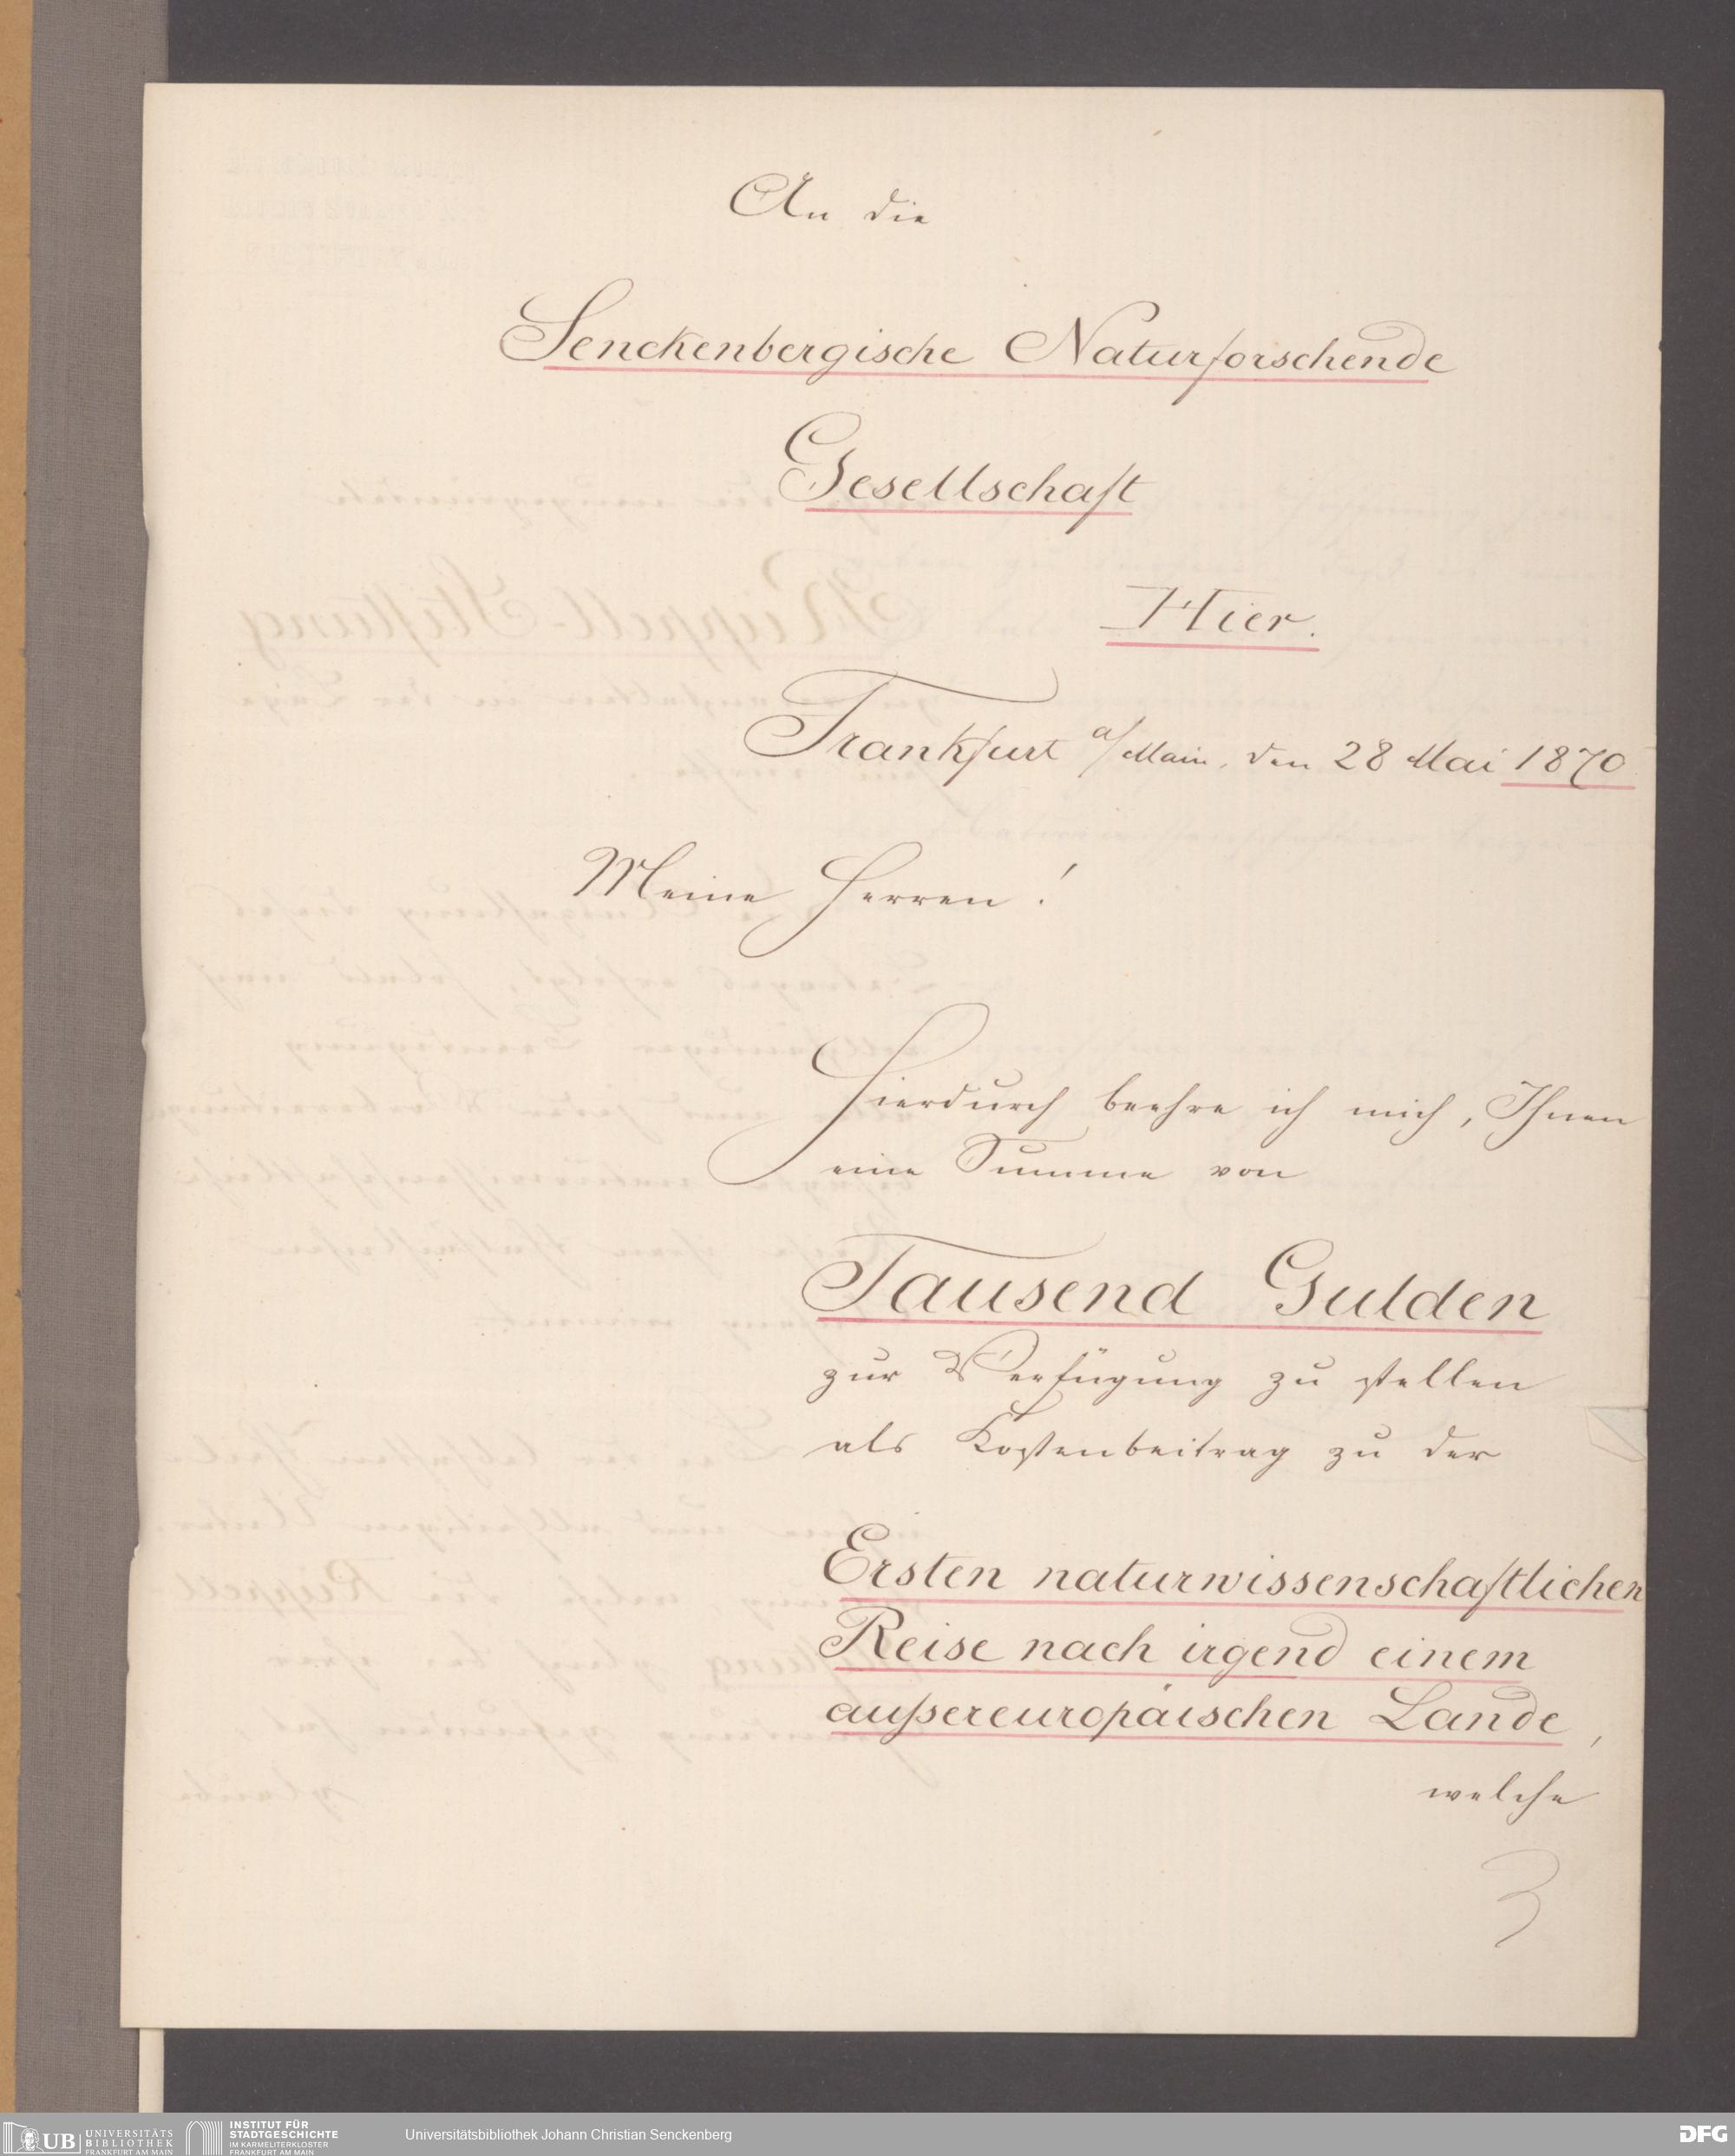 An die
Senckenbergische Naturforschende
Gesellschaft
Hier.
Frankfurt a/Main, den 28 Mai 1870
Meine Herren!
Hierdurch beehre ich mich, Ihnen
eine Summe von
Tausend Gulden
zur Verfügung zu stellen
als Kostenbeitrag zu der
Ersten naturwissenschaftlichen
Reise nach irgend einem
außereuropäischen Lande,
welche
3
UB UNIVERSITÄTS
BIBLIOTHEK
FRANKFURT AM MAIN
INSTITUT FÜR
STADTGESCHICHTE
IM KARMELITERKLOSTER
FRANKFURT AM MAIN
Universitätsbibliothek Johann Christian Senckenberg
DFG